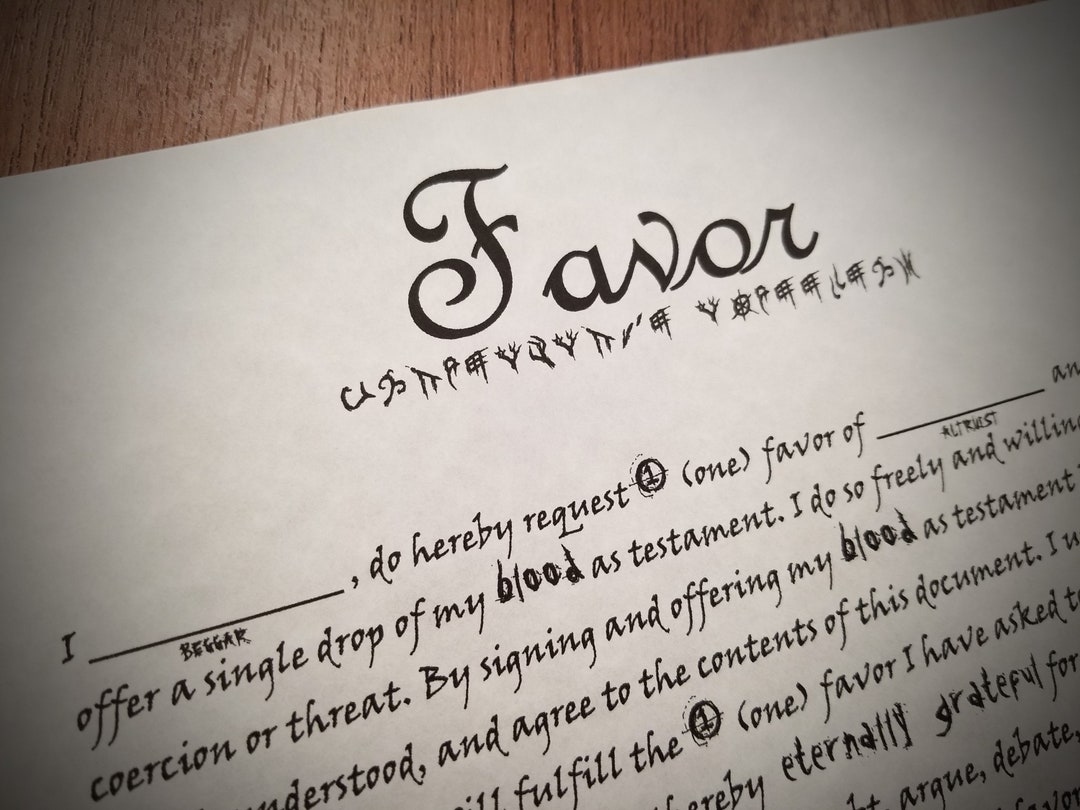 Favor
I ____________, do hereby request 1 (one) favor of ____________ an
BEGGAR
ALTRUIST
offer a single drop of my blood as testament. I do so freely and willing
coercion or threat. By signing and offering my blood as testament
nderstood, and agree to the contents of this document. I u
ill fulfill the 1 (one) favor I have asked t
ereby eternally grateful for
argue, debate,